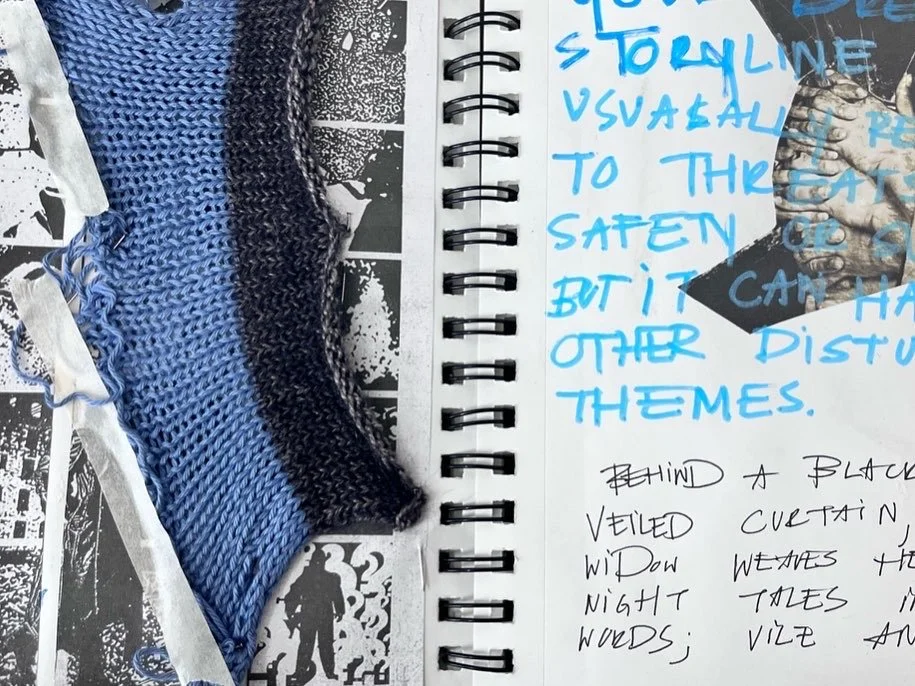 YOUR DRE
STORYLINE
USUASALLY RE
TO THREATS
SAFETY OR SU
BUT iT CAN HA
OTHER DISTU
THEMES.
BEHIND A BLACK
VEILED CURTAiN,
WiDOW WEAVES HE
NIGHT TALES i
WORDS; VILE AN